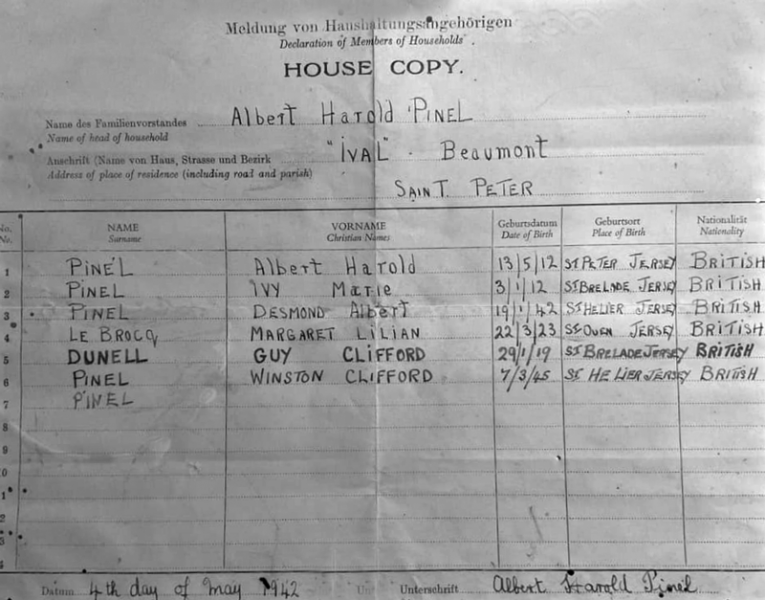 Meldung von Haushaltungsangehörigen
Declaration of Members of Households
HOUSE COPY.
Name des Familienvorstandes Albert Harold PINEL
Name of head of household
Anschrift (Name von Haus, Strasse und Bezirk "IVAL" - Beaumont
Address of place of residence (including road and parish)
SAINT PETER
No. NAME VORNAME Geburtsdatum Geburtsort Nationalität
No. Surname Christian Names Date of Birth Place of Birth Nationality
1 PINEL Albert Harold 13/5/12 ST PETER JERSEY BRITISH
2 PINEL IVY Marie 3/1/12 ST BRELADE JERSEY BRITISH
3 PINEL DESMOND Albert 19/1/42 ST HELIER JERSEY BRITISH
4 LE BROCQ MARGARET LILIAN 22/3/23 ST OUEN JERSEY BRITISH
5 DUNELL GUY CLIFFORD 29/1/19 ST BRELADE JERSEY BRITISH
6 PINEL WINSTON CLIFFORD 7/3/45 ST HELIER JERSEY BRITISH
7 PINEL
8
9
0
1
2
3
4
Datum 4th day of May 1942 Unterschrift Albert Harold Pinel